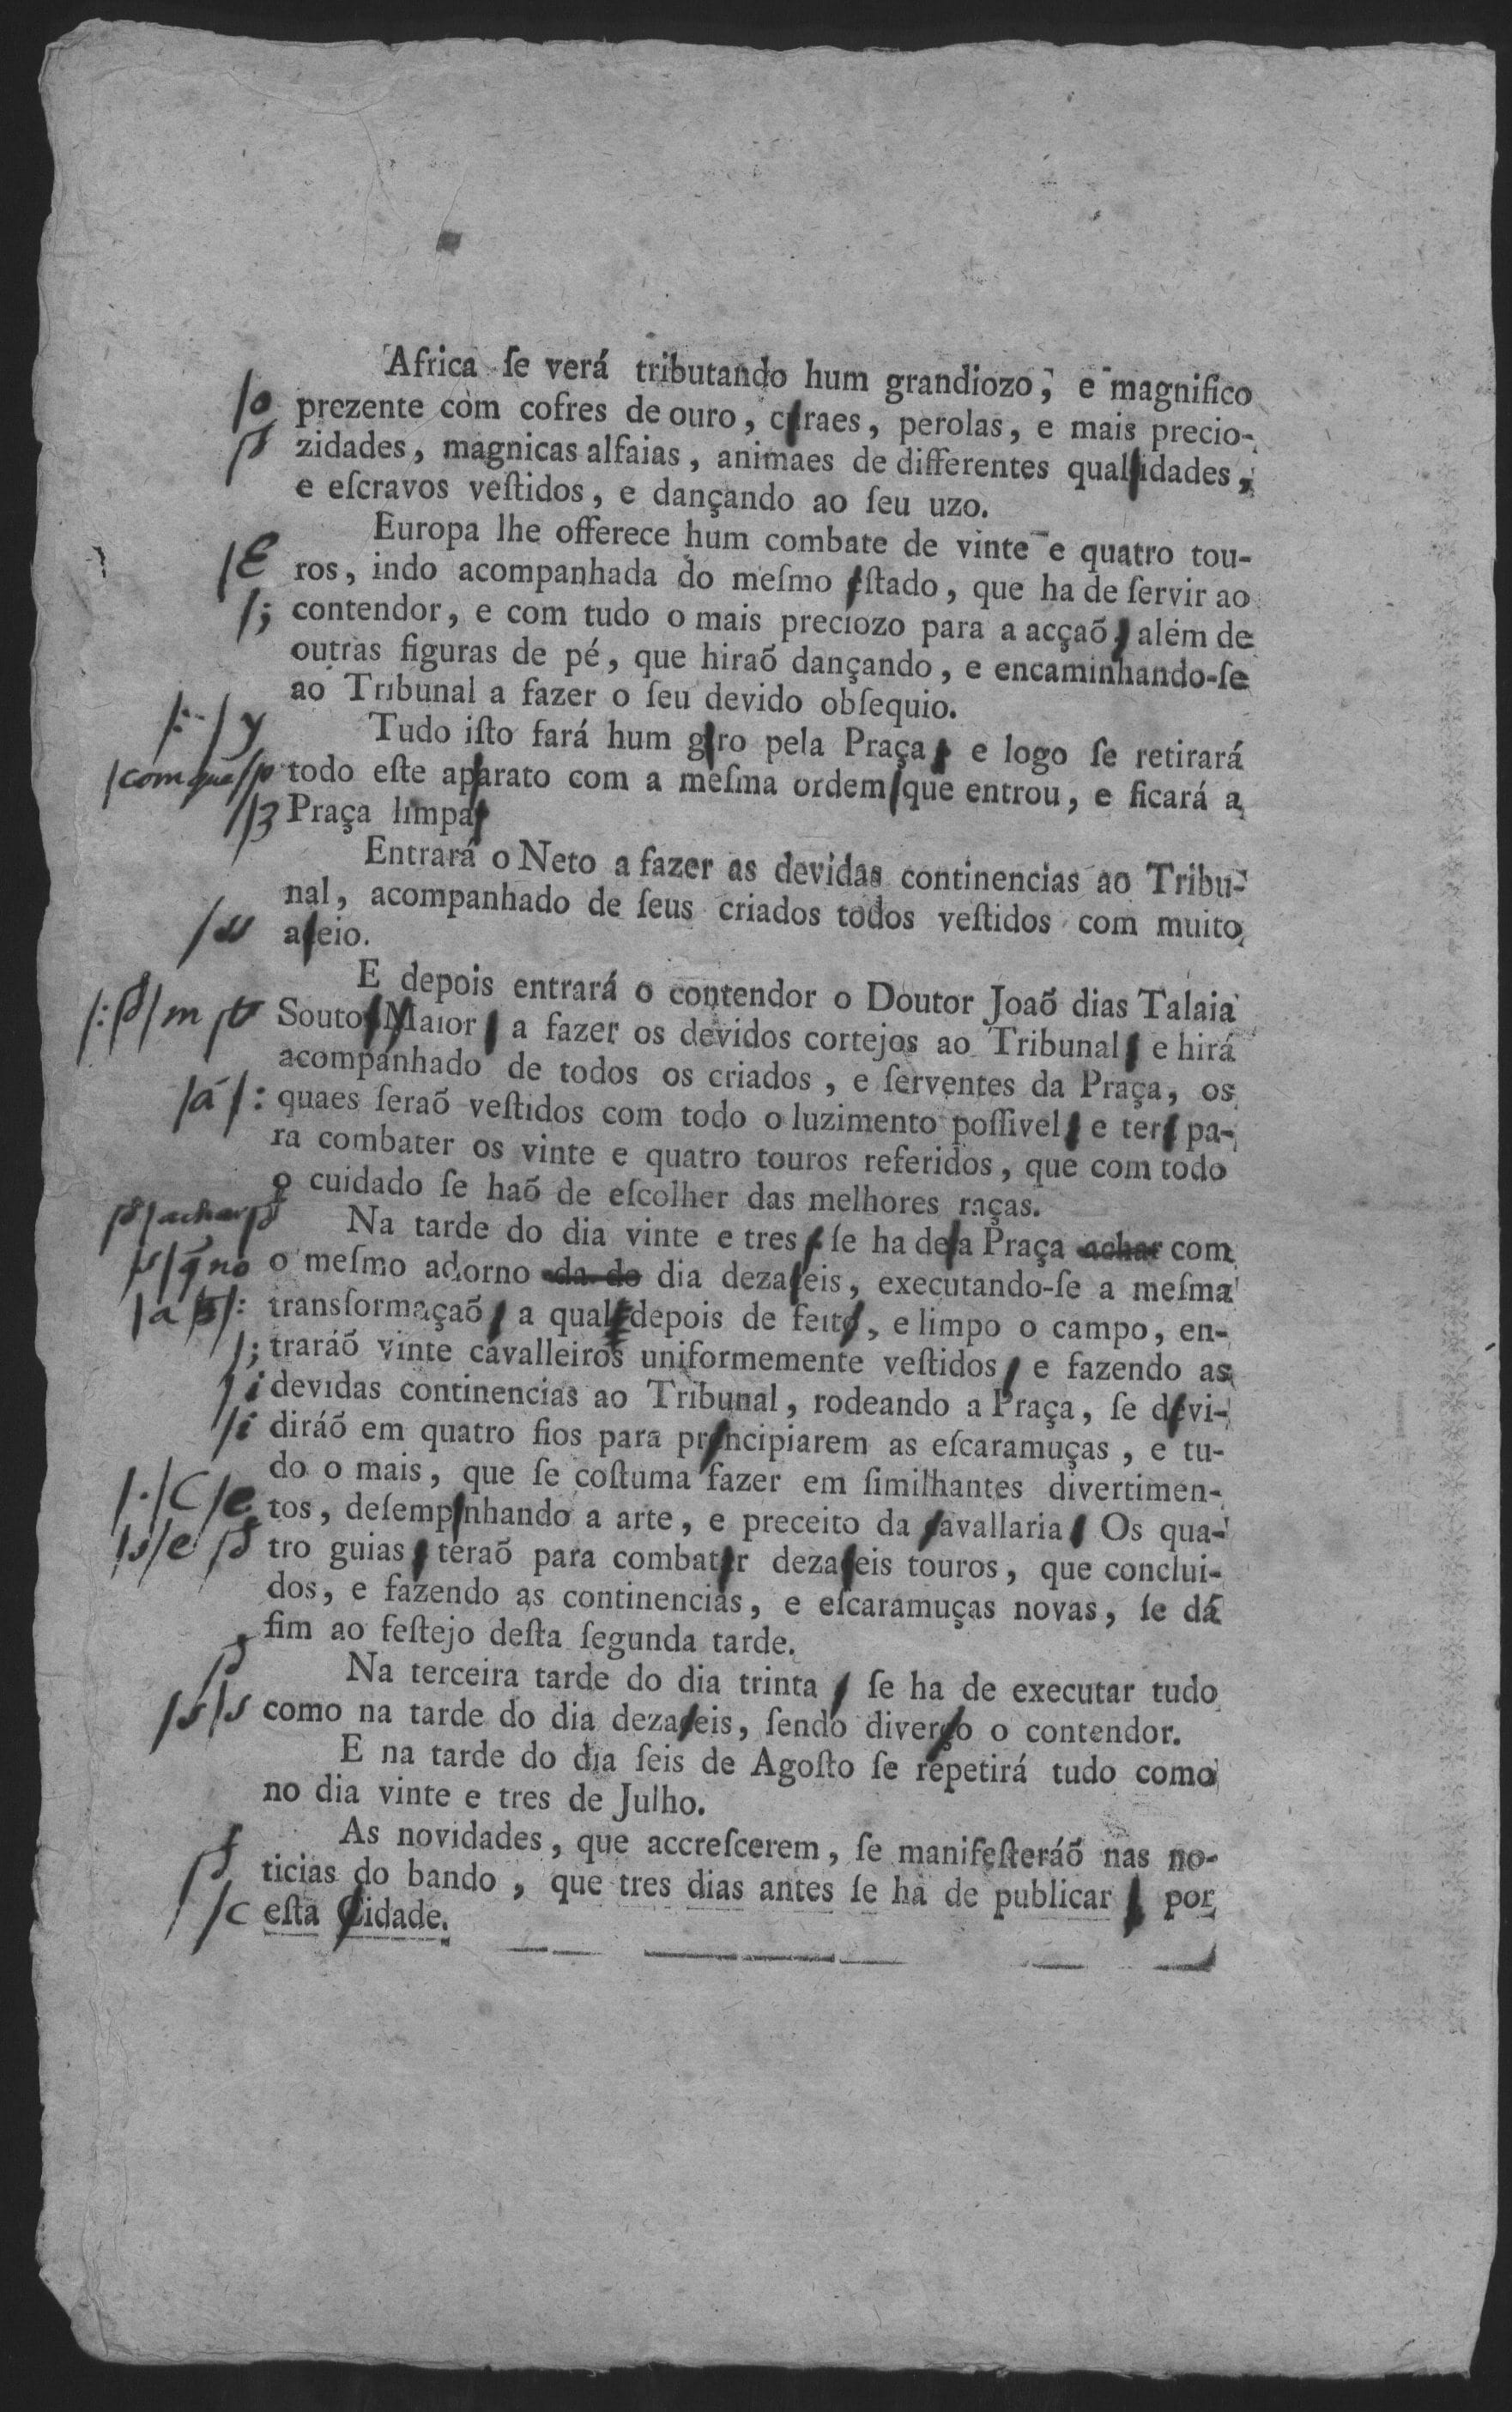 Africa ſe verá tributando hum grandiozo, e magnifico
/o prezente com cofres de ouro, craes, perolas, e mais precio-
zidades, magnicas alfaias, animaes de differentes qualidades,
e eſcravos veſtidos, e dançando ao ſeu uzo.
Europa lhe offerece hum combate de vinte e quatro tou-
/E ros, indo acompanhada do meſmo eſtado, que ha de ſervir ao
/; contendor, e com tudo o mais preciozo para a acçaõ, além de
outras figuras de pé, que hiraõ dançando, e encaminhando-ſe
ao Tribunal a fazer o ſeu devido obſequio.
/:-/y Tudo iſto fará hum giro pela Praça, e logo ſe retirará
/com que/p todo eſte aparato com a meſma ordem que entrou, e ficará a
Praça limpa
Entrará o Neto a fazer as devidas continencias ao Tribu-
nal, acompanhado de ſeus criados todos veſtidos com muito
/ss aſeio.
E depois entrará o contendor o Doutor Joaõ dias Talaia
Souto, Maior, a fazer os devidos cortejos ao Tribunal, e hirá
acompanhado de todos os criados, e ſerventes da Praça, os
/á/: quaes ſeraõ veſtidos com todo o luzimento poſſivel, e ter pa-
ra combater os vinte e quatro touros referidos, que com todo
o cuidado ſe haõ de eſcolher das melhores raças.
/achar Na tarde do dia vinte e tres, ſe ha de a Praça achar com
/s/q̃ no o meſmo adorno da do dia dezaſeis, executando-ſe a meſma
transformaçaõ, a qual depois de feito, e limpo o campo, en-
/; traráõ vinte cavalleiros uniformemente veſtidos, e fazendo as
/i devidas continencias ao Tribunal, rodeando a Praça, ſe devi-
/i diráõ em quatro fios para principiarem as eſcaramuças, e tu-
do o mais, que ſe coſtuma fazer em ſimilhantes divertimen-
/./C/e tos, deſempinhando a arte, e preceito da cavallaria, Os qua-
/s/e tro guias, teraõ para combatar dezaſeis touros, que conclui-
dos, e fazendo as continencias, e eſcaramuças novas, ſe dá
fim ao feſtejo deſta ſegunda tarde.
Na terceira tarde do dia trinta, ſe ha de executar tudo
/s/s como na tarde do dia dezaſeis, ſendo diverço o contendor.
E na tarde do dia ſeis de Agoſto ſe repetirá tudo como
no dia vinte e tres de Julho.
As novidades, que accreſcerem, ſe manifeſteráõ nas no-
ticias do bando, que tres dias antes ſe ha de publicar, por
/c eſta Cidade.